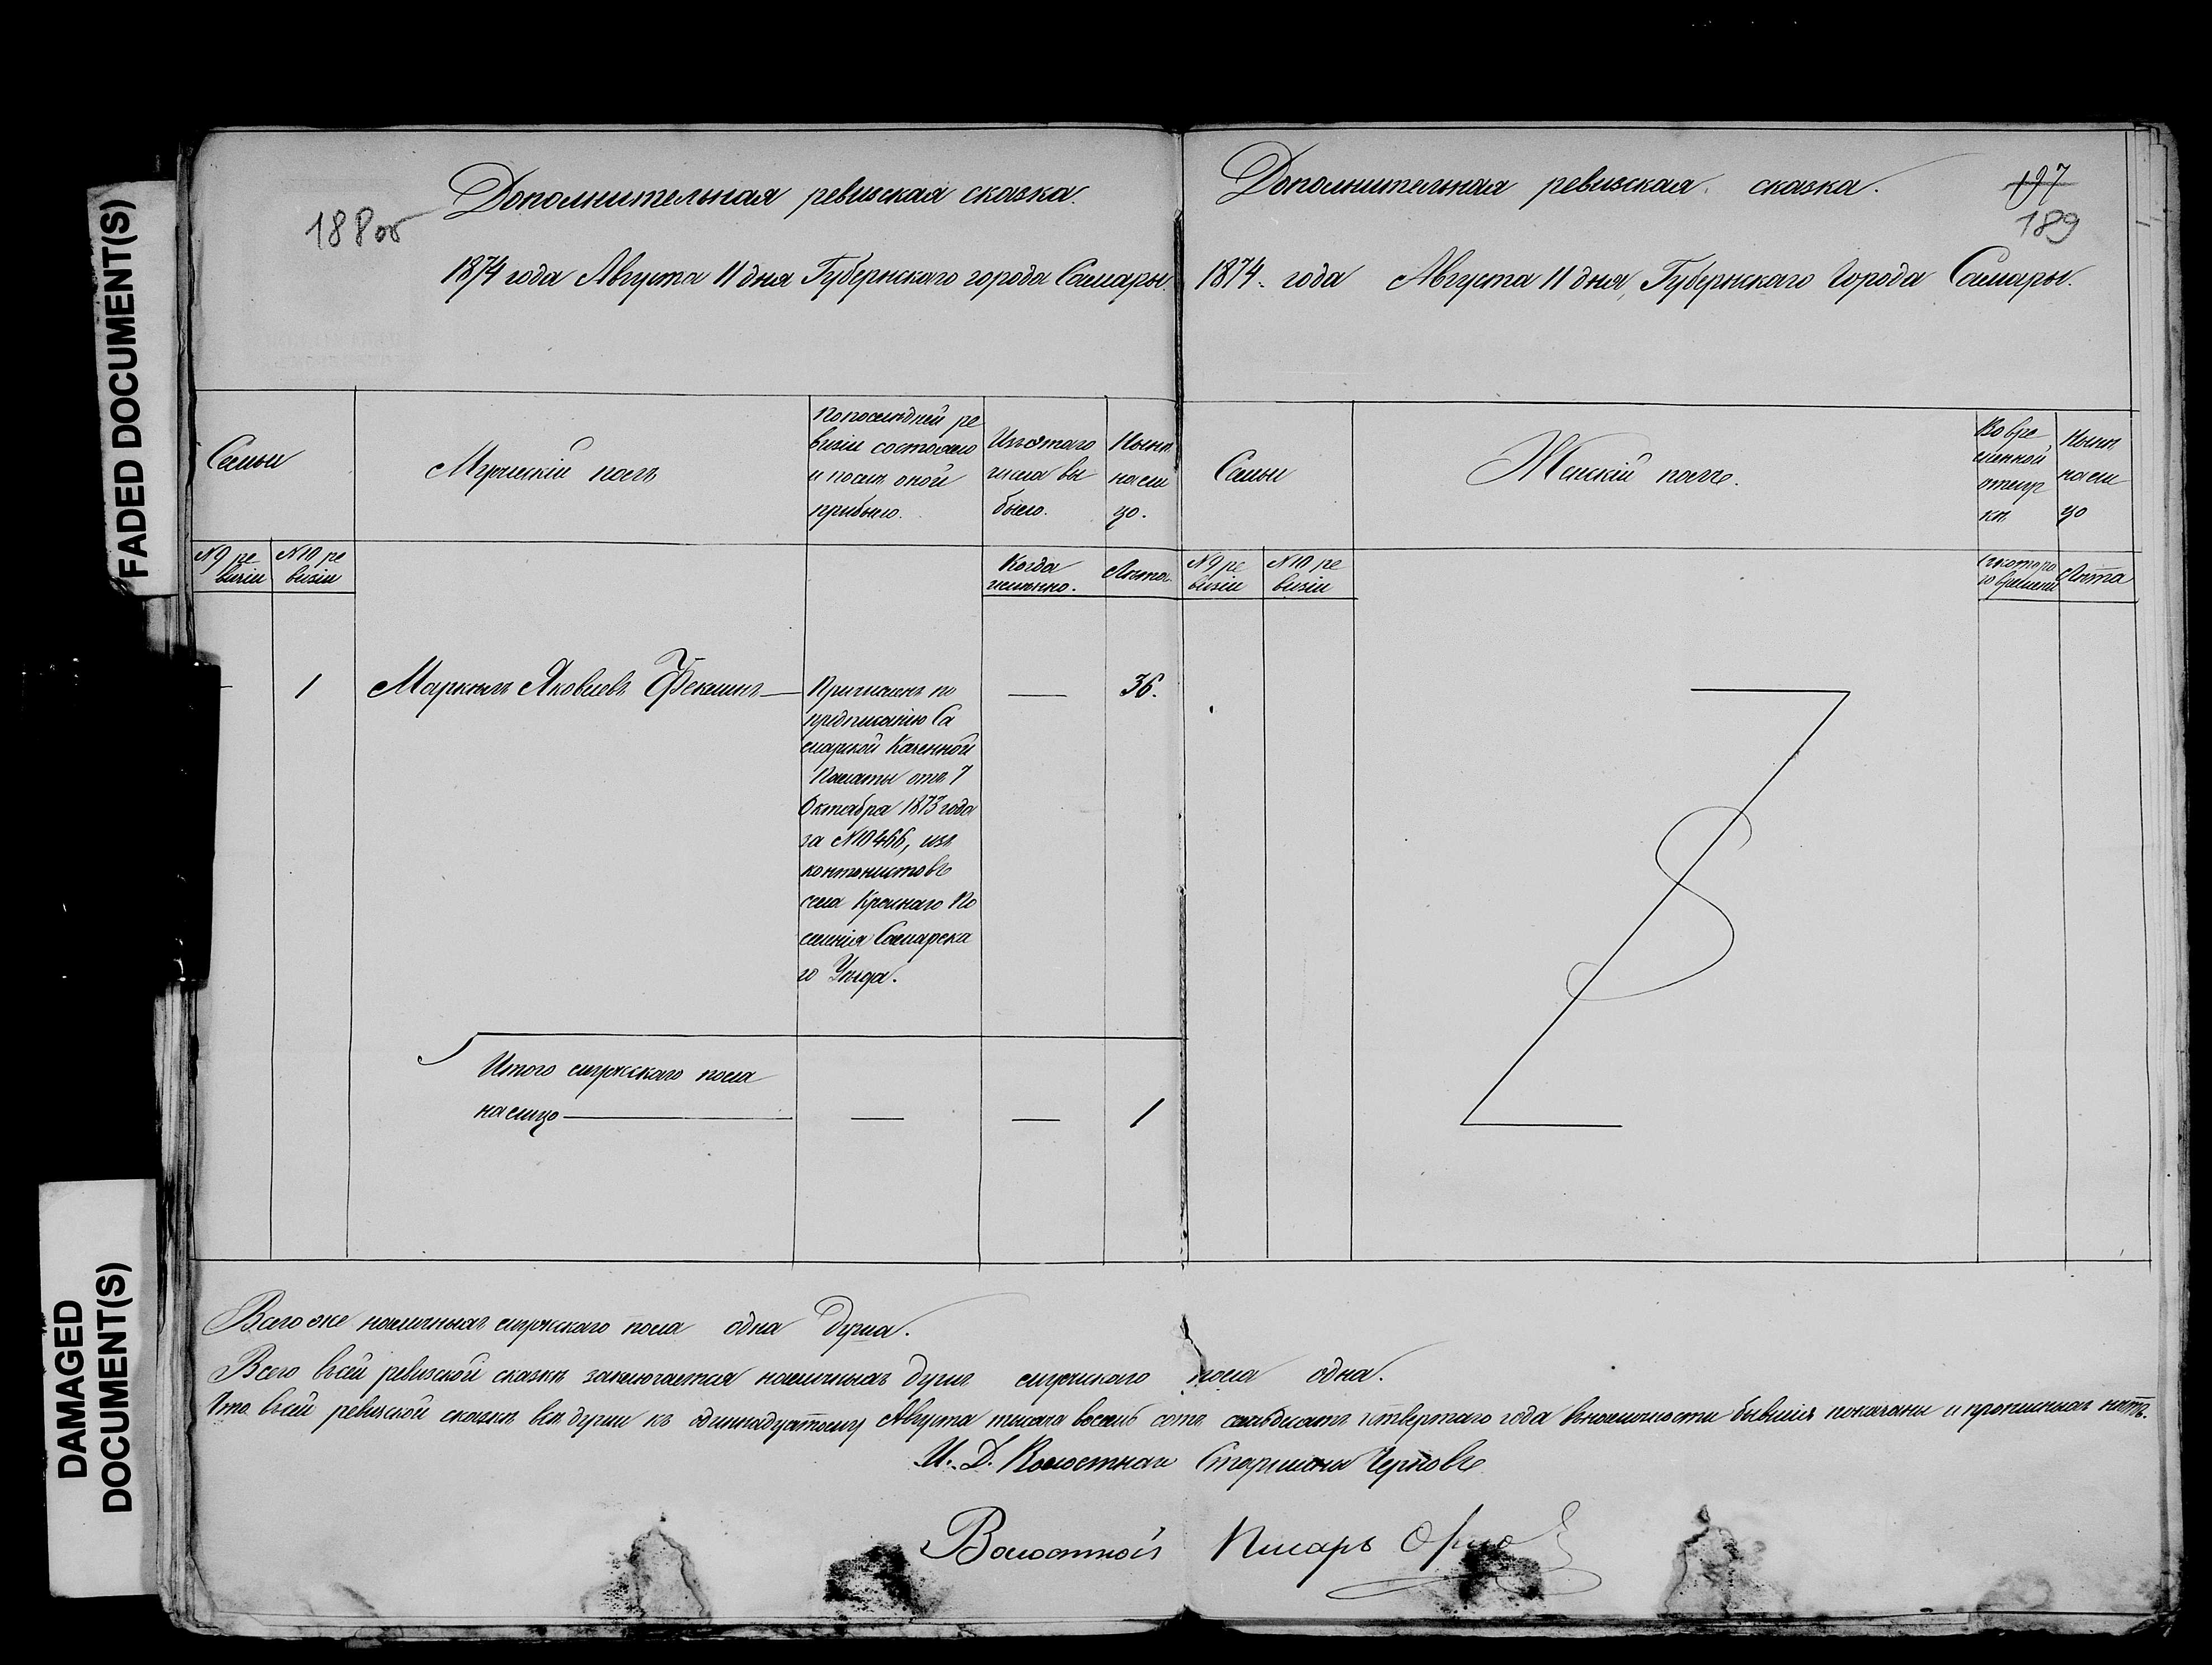 FADED DOCUMENT(S)
DAMAGED
DOCUMENT(S)
188об
Дополнительная ревизская сказка.
1874 года Августа 11 дня Губернскаго города Самары.
Семьи
Мужескій полъ
По последней ре
визіи состояло
и послѣ оной
прибыло.
Изъ этого
числа вы
было.
Нынѣ
на ли
цо.
№ 9 ре
визіи
№ 10 ре
визіи
Когда
именно.
Лѣта.
1
Маркелъ Яковлевъ
Причисленъ по
предписанію Са
марской Казенной
Палаты отъ 7
Октября 1873 года
за № 10466, изъ
контонистовъ
села Краснаго По
селенія Самарска
го Уѣзда.
36.
Итого мужескаго пола
налицо
1
Дополнительная ревизская сказка.
197
189
1874. года Августа 11 дня, Губернскаго Города Самары.
Семьи
Женскій полъ.
Во вре
менной
отлуч
кѣ
Нынѣ
на ли
цо
№ 9 ре
визіи
№ 10 ре
визіи
Съ котора
го времени
Лѣта
Всего же наличныхъ мужескаго пола одна душа.
Всего въ сей ревизской сказкѣ заключается наличныхъ душъ мужескаго пола одна.
Что въ сей ревизской сказкѣ всѣ души къ одиннадцатому Августа тысяча восемь сотъ семьдесятъ четвертаго года въ наличности бывшія показаны и прописныхъ нѣтъ.
И. Д. Волостнаго Старшины Черновъ
Волостной Писарь